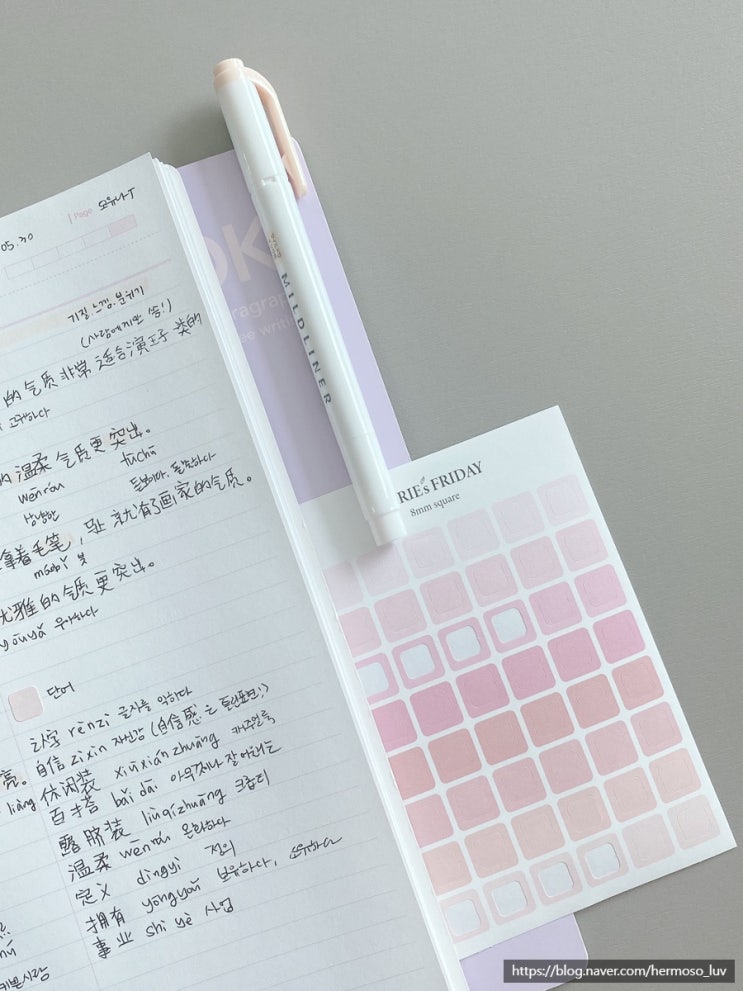 Page
05.30
기질, 느낌, 분위기
(사람에게만 씀!)
的气质非常适合演王子类的
的温柔气质更突出。
wēnróu tūchū
상냥한 돋보이다, 돌출하다
拿着毛笔,马上就有了画家的气质。
máobǐ 붓
优雅的气质更突出。
yōuyǎ 우아하다
단어
认字 rènzì 글자를 익히다
亮。
liàng
自信 zìxìn 자신감 (自信感는 틀린표현!)
休闲装 xiūxiánzhuāng 캐주얼룩
百搭 bǎi dā 아무거나 잘 어울리는
露脐装 lùqízhuāng 크롭티
温柔 wēnróu 온화하다
定义 dìngyì 정의
拥有 yōngyǒu 보유하다, 소유하다
事业 shì yè 사업
OK
ee writi
MILDLINER
RIE's FRIDAY
8mm square
https://blog.naver.com/hermoso_luv